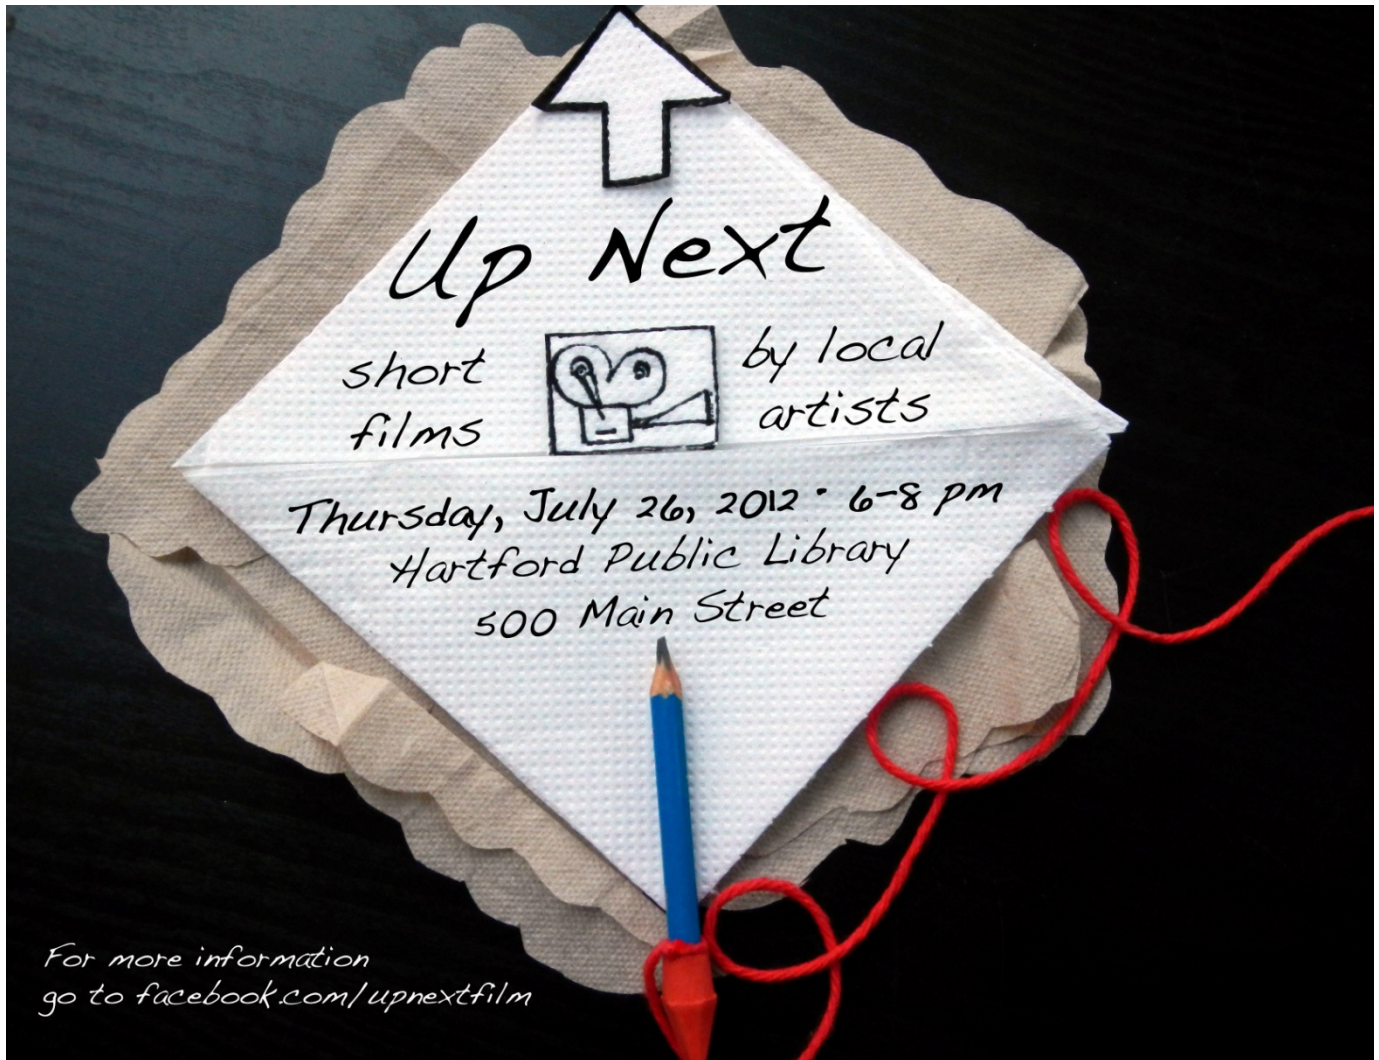 Up Next
short films
by local artists
Thursday, July 26, 2012 · 6-8 pm
Hartford Public Library
500 Main Street
For more information
go to facebook.com/upnextfilm